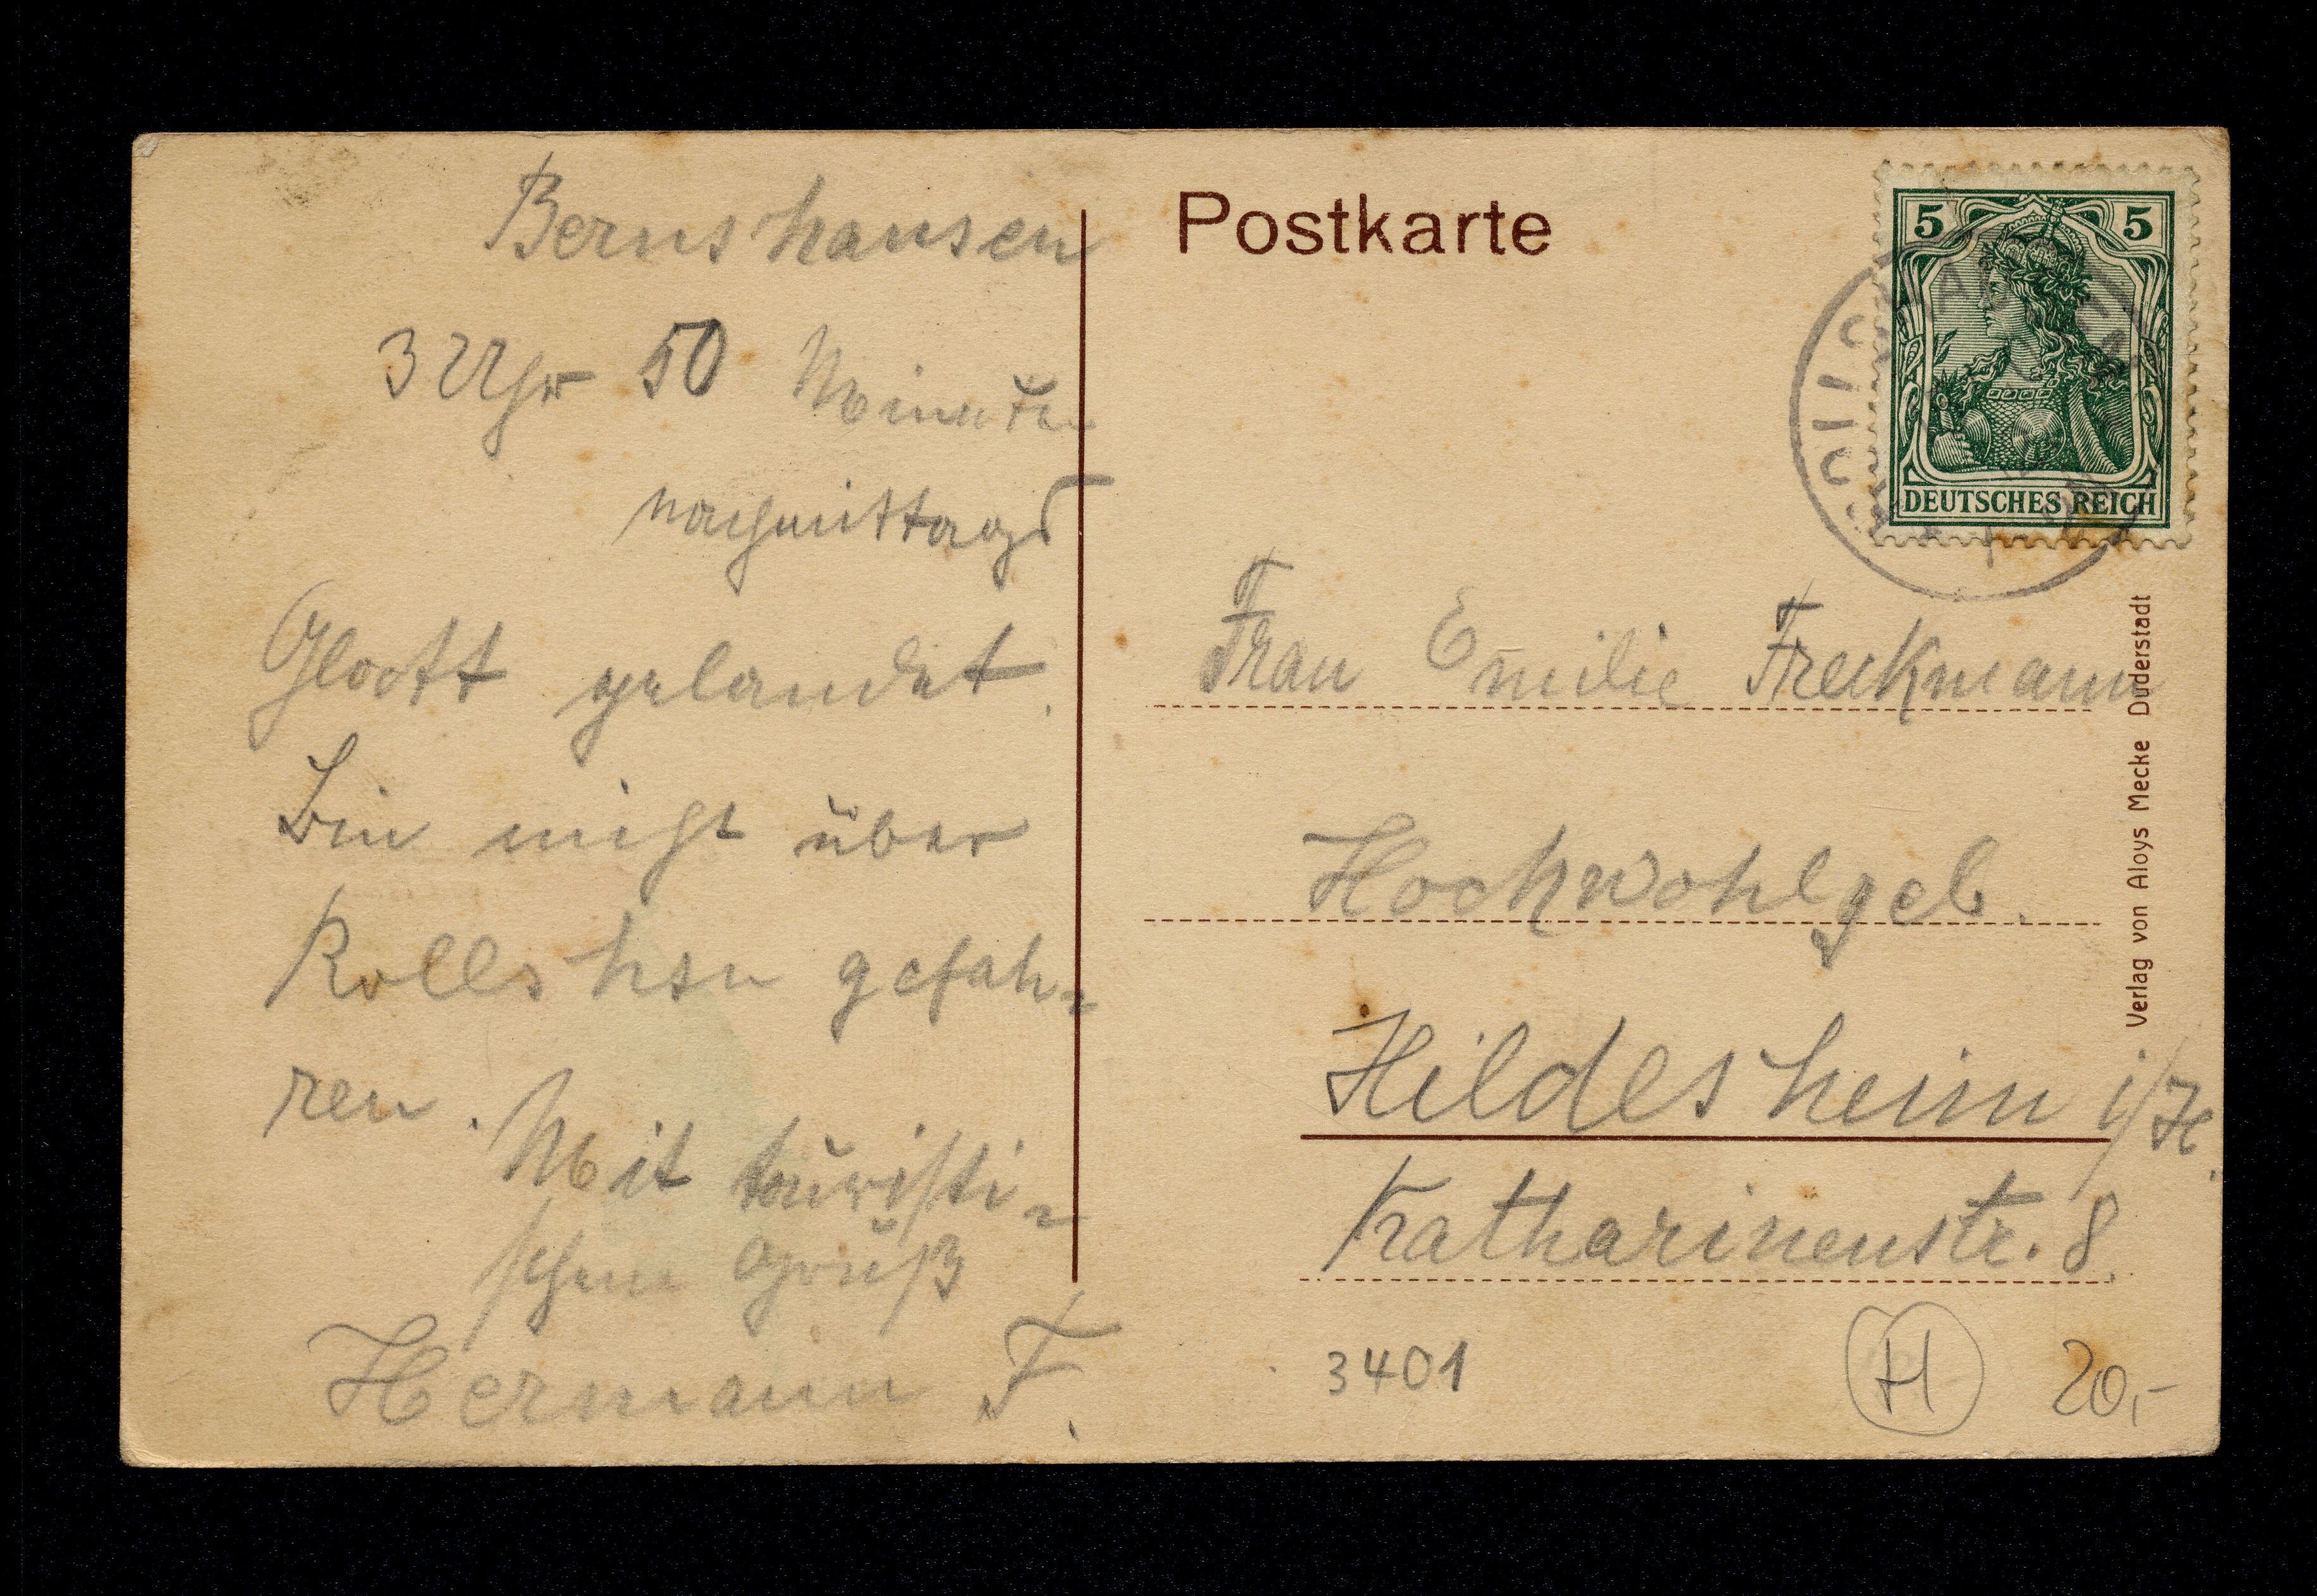 Bernshausen
3 Uhr 50 Minuten
nachmittags
Glatt gelandet.
Bin nicht über
Rollshsn gefah-
ren. Mit touristi-
schem Gruß
Hermann F.
Postkarte
5 5
DEUTSCHES REICH
Frau Emilie Freckmann
Hochwohlgeb.
Hildesheim i/H.
Katharinenstr. 8.
Verlag von Aloys Mecke Duderstadt
3401
H
20,-